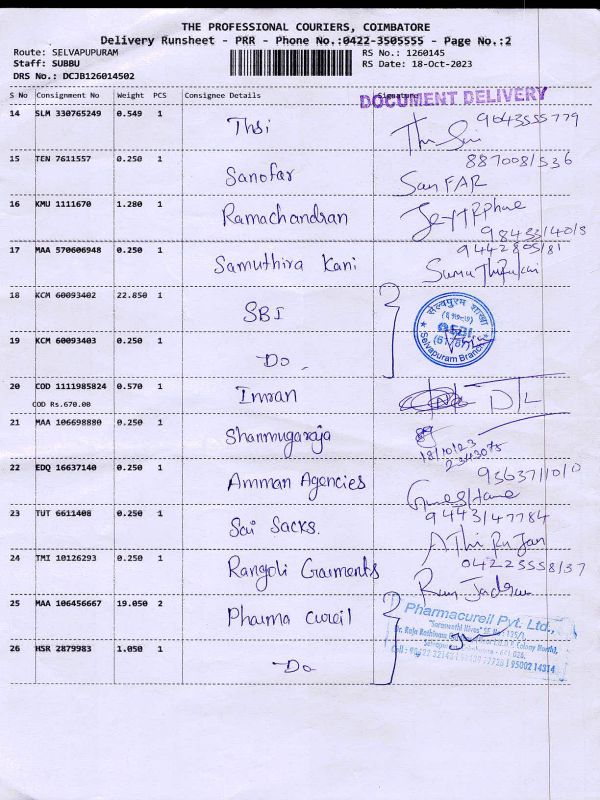 THE PROFESSIONAL COURIERS, COIMBATORE
Delivery Runsheet - PRR - Phone No.:0422-3505555 - Page No.:2
Route: SELVAPUPURAM
Staff: SUBBU
DRS No.: DCJB126014502
RS No.: 1260145
RS Date: 18-Oct-2023
S No Consignment No Weight PCS Consignee Details Signature
DOCUMENT DELIVERY
14 SLM 330765249 0.549 1 Thsi 9043555779
15 TEN 7611557 0.250 1 Sanofar 8870081536
San FAR
16 KMU 1111670 1.280 1 Ramachandran
17 MAA 570606948 0.250 1 Samuthira Kani 9442805181
18 KCM 60093402 22.850 1 SBI
सेल्वपुरम शाखा
SBI
Selvapuram Branch
19 KCM 60093403 0.250 1 Do
20 COD 1111985824 0.570 1 Imran D/L
COD Rs.670.00
21 MAA 106698880 0.250 1 Shanmugaraja
18/10/23
2343075
22 EDQ 16637140 0.250 1 Amman Agencies
23 TUT 6611408 0.250 1 Sai Sacks. 9443147784
24 TMI 10126293 0.250 1 Rangoli Garments 04223558137
25 MAA 106456667 19.050 2 Pharma cureil
Pharmacureil Pvt. Ltd.,
26 HSR 2879983 1.050 1 Do
95002 14314